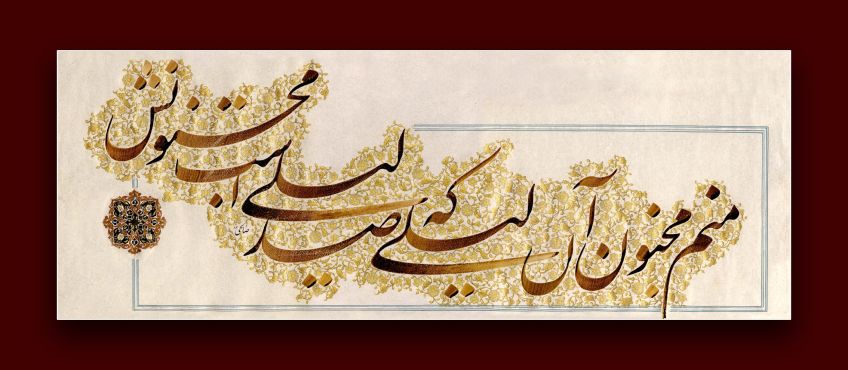 منم مجنون آن لیلی که صد لیلی است مجنونش